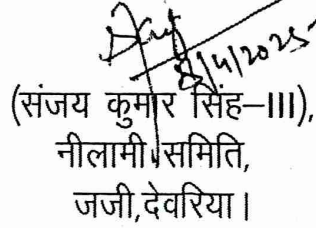 8/4/2025
(संजय कुमार सिंह–III),
नीलामी समिति,
जजी,देवरिया।